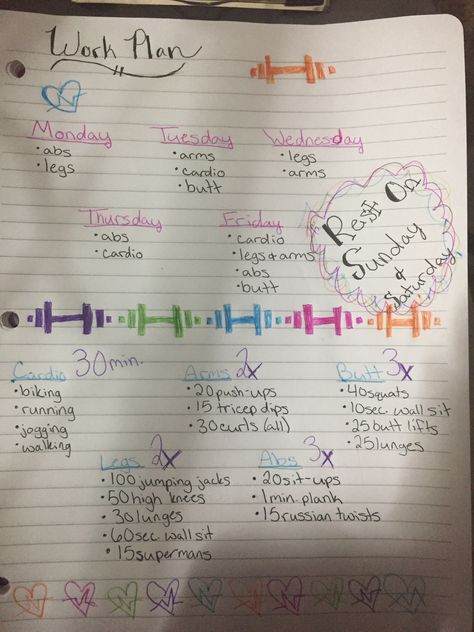 Work Plan
Monday
• abs
• legs
Tuesday
• arms
• cardio
• butt
Wednesday
• legs
• arms
Thursday
• abs
• cardio
Friday
• cardio
• legs & arms
• abs
• butt
Rest On
Sunday
&
Saturday
Cardio 30 min.
• biking
• running
• jogging
• walking
Arms 2x
• 20 push-ups
• 15 tricep dips
• 30 curls (all)
Butt 3x
• 40 squats
• 10 sec wall sit
• 25 butt lifts
• 25 lunges
Legs 2x
• 100 jumping jacks
• 50 high knees
• 30 lunges
• 60 sec wall sit
• 15 supermans
Abs 3x
• 20 sit-ups
• 1 min. plank
• 15 russian twists